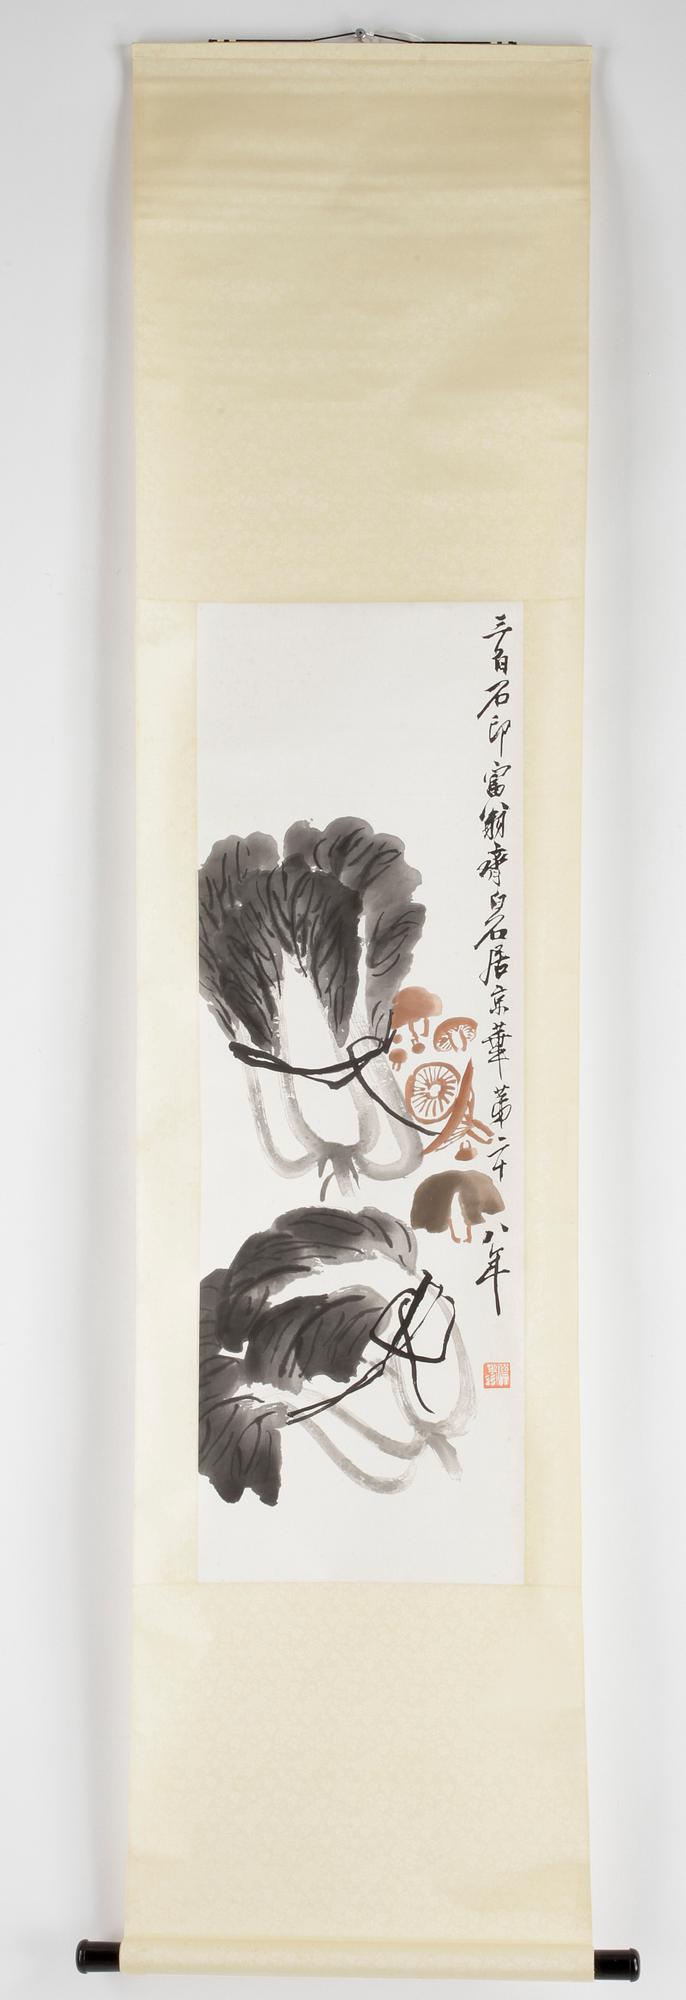 三百石印富翁齊白石居京華第二十八年